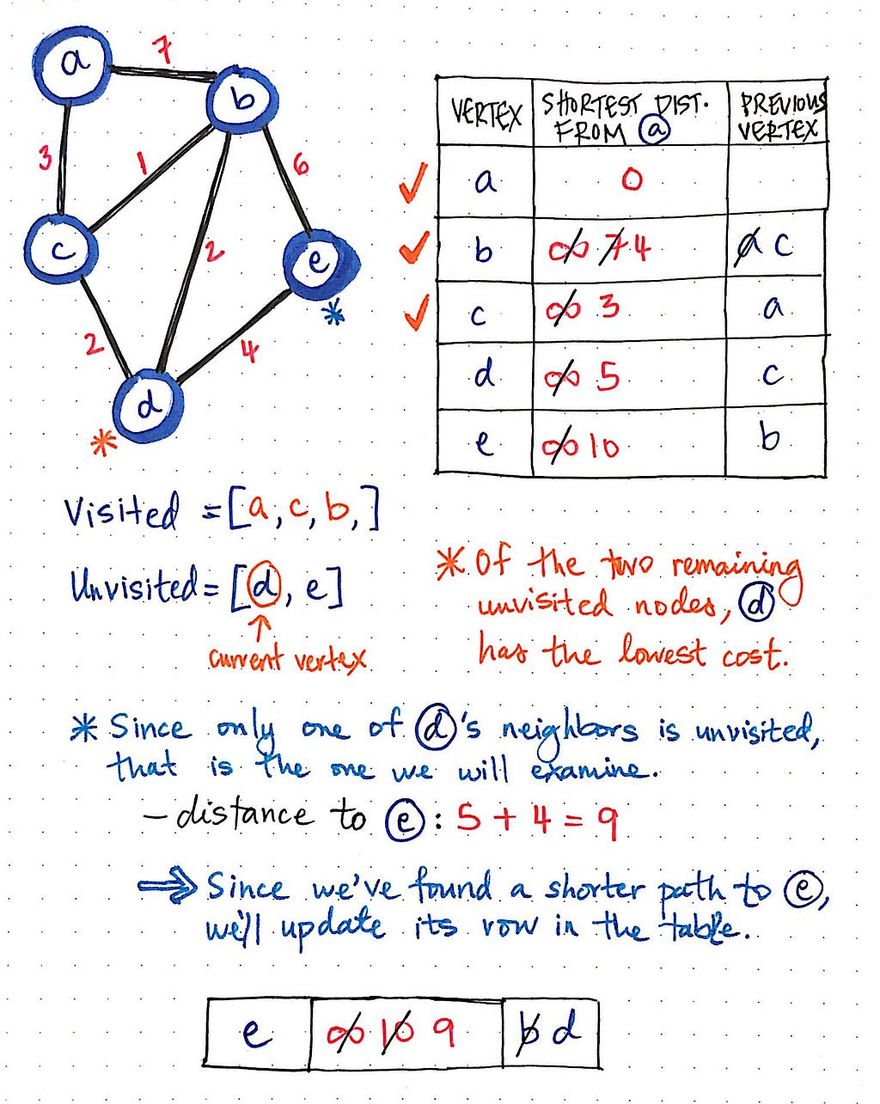 a
7
b
3
1
6
c
2
e
*
2
4
d
*
VERTEX SHORTEST DIST. FROM a PREVIOUS VERTEX
✓ a 0
✓ b ∞ 7 4 a c
✓ c ∞ 3 a
d ∞ 5 c
e ∞ 10 b
Visited = [a, c, b, ]
Unvisited = [d, e]
↑
current vertex
* Of the two remaining
unvisited nodes, d
has the lowest cost.
* Since only one of d's neighbors is unvisited,
that is the one we will examine.
- distance to e: 5 + 4 = 9
⇒ Since we've found a shorter path to e,
we'll update its row in the table.
e ∞ 10 9 b d